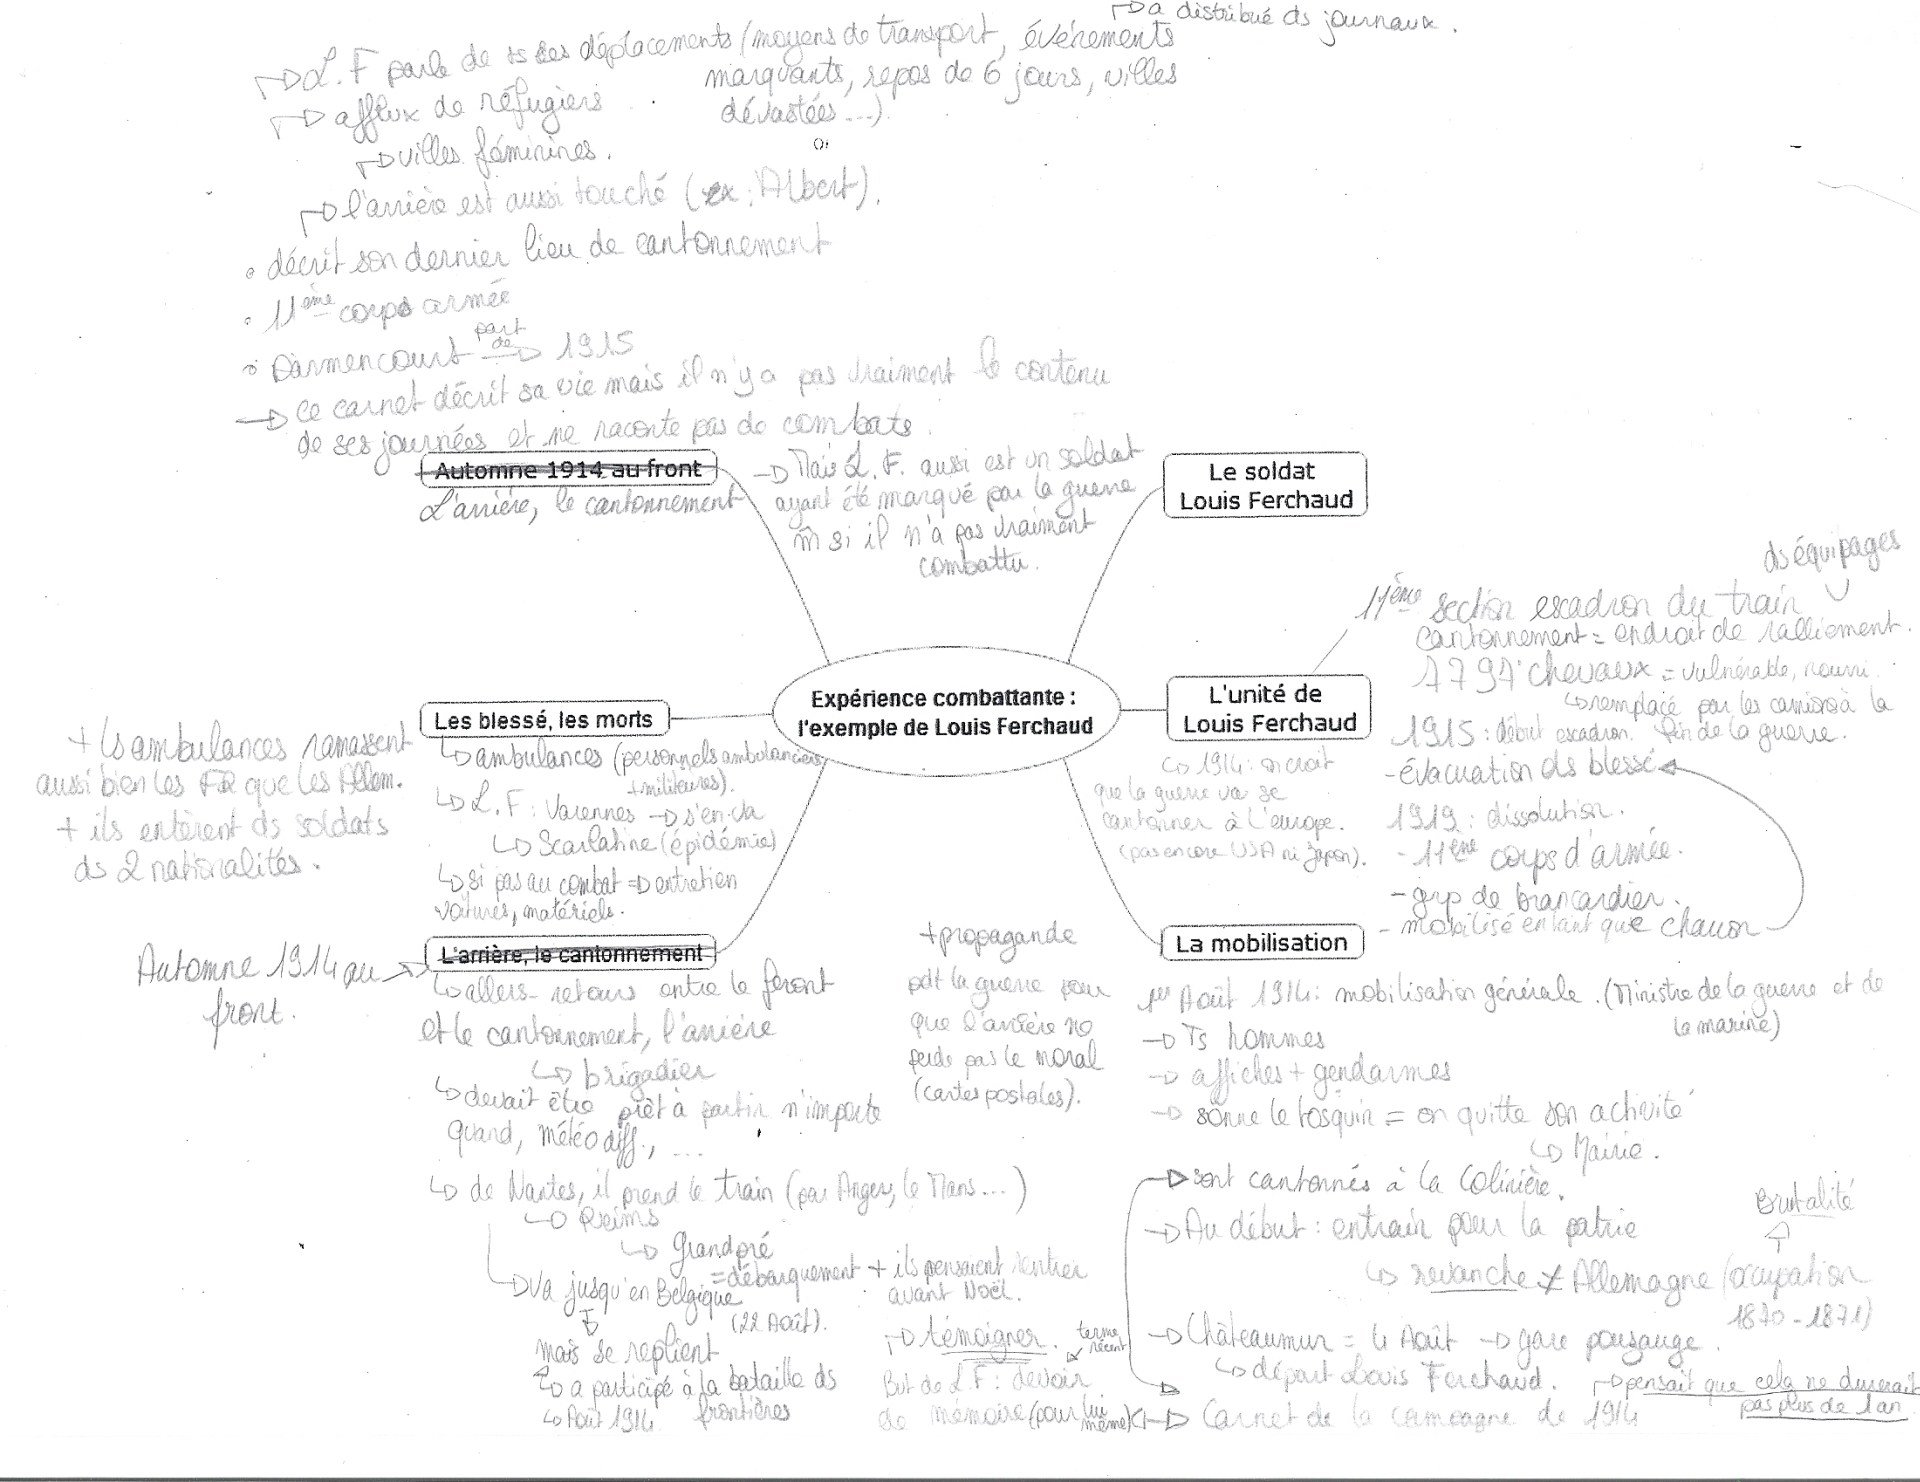 ↱ a distribué ds journaux.
↱ L.F parle de ts ses déplacements (moyens de transport, événements
marquants, repos de 6 jours, villes
dévastées ...).
↱ afflux de réfugiers
↱ villes féminines.
↱ l'arrière est aussi touché (ex: Albert).
• décrit son dernier lieu de cantonnement
• 11ème corps armée
• Darmencourt part de → 1915
→ Ce carnet décrit sa vie mais il n'y a pas vraiment le contenu
de ses journées et ne raconte pas de combats.
Automne 1914 au front
L'arrière, le cantonnement
→ Mais L.F. aussi est un soldat
ayant été marqué par la guerre
m̂ si il n'a pas vraiment
combattu.
Le soldat
Louis Ferchaud
Expérience combattante :
l'exemple de Louis Ferchaud
L'unité de
Louis Ferchaud
ds équipages
11ème section escadron du train
cantonnement = endroit de ralliement.
chevaux = vulnérable, nourri.
↳ remplacé par les camions à la
fin de la guerre.
1915 : début escadron.
- évacuation ds blessé
1919 : dissolution.
- 11ème corps d'armée.
- grp de brancardier.
- mobilisé en tant que
↳ 1914 : on croit
que la guerre va se
cantonner à l'europe.
(pas encore USA ni Japon).
Les blessé, les morts
↳ ambulances (personnels ambulanciers
+ militaires).
↳ L.F : Varennes → s'en va
↳ Scarlatine (épidémie)
↳ si pas au combat ⇒ entretien
voitures, matériels.
+ ls ambulances ramassent
aussi bien les FR que les Allem.
+ ils entèrent ds soldats
ds 2 nationalités.
L'arrière, le cantonnement
Automne 1914 au
front.
↳ allers-retours entre le feront
et le cantonnement, l'arrière
↳ brigadier
↳ devait être prêt à partir n'importe
quand, météo diff., ...
↳ de Nantes, il prend le train (par Angers, le Mans...)
↳ Reims
↳ Grandpré
= débarquement + ils pensaient rentrer
avant Noël.
↳ Va jusqu'en Belgique
(22 Août).
mais se replient
↳ a participé à la bataille ds
frontières
↳ Août 1914.
+ propagande
pdt la guerre pour
que l'arrière ne
perde pas le moral
(cartes postales).
↱ témoigner.
terme récent
But de L.F : devoir
de mémoire (pour lui même)
La mobilisation
1er Août 1914 : mobilisation générale. (Ministre de la guerre et de
la marine)
→ Ts hommes
→ affiches + gendarmes
→ sonne le tosquin = on quitte son activité
↳ Mairie.
→ sont cantonnés à la Colinière.
→ Au début : entrain pour la patrie
Brutalité
↳ revanche ≠ Allemagne (occupation
1870 - 1871)
→ Châteaumur = 4 Août → gare pouzauge.
↳ départ Louis Ferchaud.
↱ pensait que cela ne durerait
pas plus de 1 an
→ Carnet de la campagne de 1914